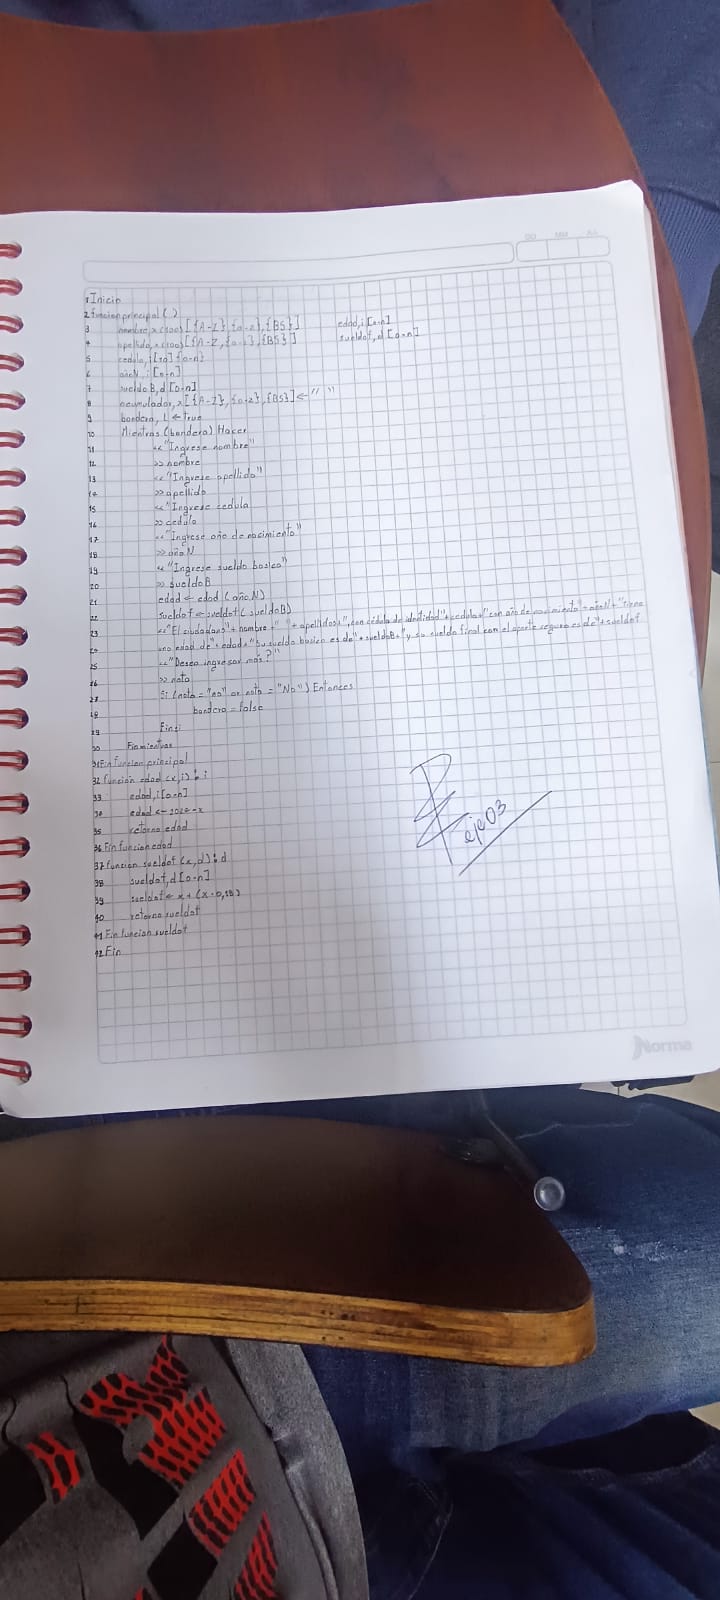 DD MM AA
1 Inicio
2 funcion principal ( )
3 nombre, x (100) [{A-Z}, {a-z}, {BS}] edad, i [0-n]
4 apellido, x (100) [{A-Z, {a-z}, {BS}] sueldof, d [0-n]
5 cedula, i [10] {0-n}
6 añoN, i [0-n]
7 sueldo B, d [0-n]
8 acumulador, x [{A-Z}, {a-z}, {BS}] ← " "
9 bandera, L ← true
10 Mientras (bandera) Hacer
11 << "Ingrese nombre"
12 >> nombre
13 << "Ingrese apellido"
14 >> apellido
15 << "Ingrese cedula
16 >> cedula
17 << "Ingrese año de nacimiento"
18 >> año N
19 << "Ingrese sueldo basico"
20 >> sueldo B
21 edad ← edad (año N)
22 sueldof ← sueldof (sueldoB)
23 << "El ciudadano" + nombre + " " + apellidos + ", con cédula de identidad" + cedula + "con año de nacimiento" + añoN + "tiene
24 una edad de" + edad + "Su sueldo basico es de" + sueldoB + "y su sueldo final con el aporte seguro es de" + sueldof
25 << "Desea ingresar mas?"
26 >> nota
27 Si (nota = "no" or nota = "No") Entonces
28 bandera = false
29 Finsi
30 Fin mientras
31 Fin funcion principal
32 funcion edad (x, i) : i
33 edad, i [0-n]
34 edad ← 2024 - x
35 retorno edad
36 Fin funcion edad
37 funcion sueldof (x, d) : d
38 sueldof, d [0-n]
39 sueldof ← x + (x · 0,18)
40 retorno sueldof
41 Fin funcion sueldof
42 Fin
eje 03
Norma